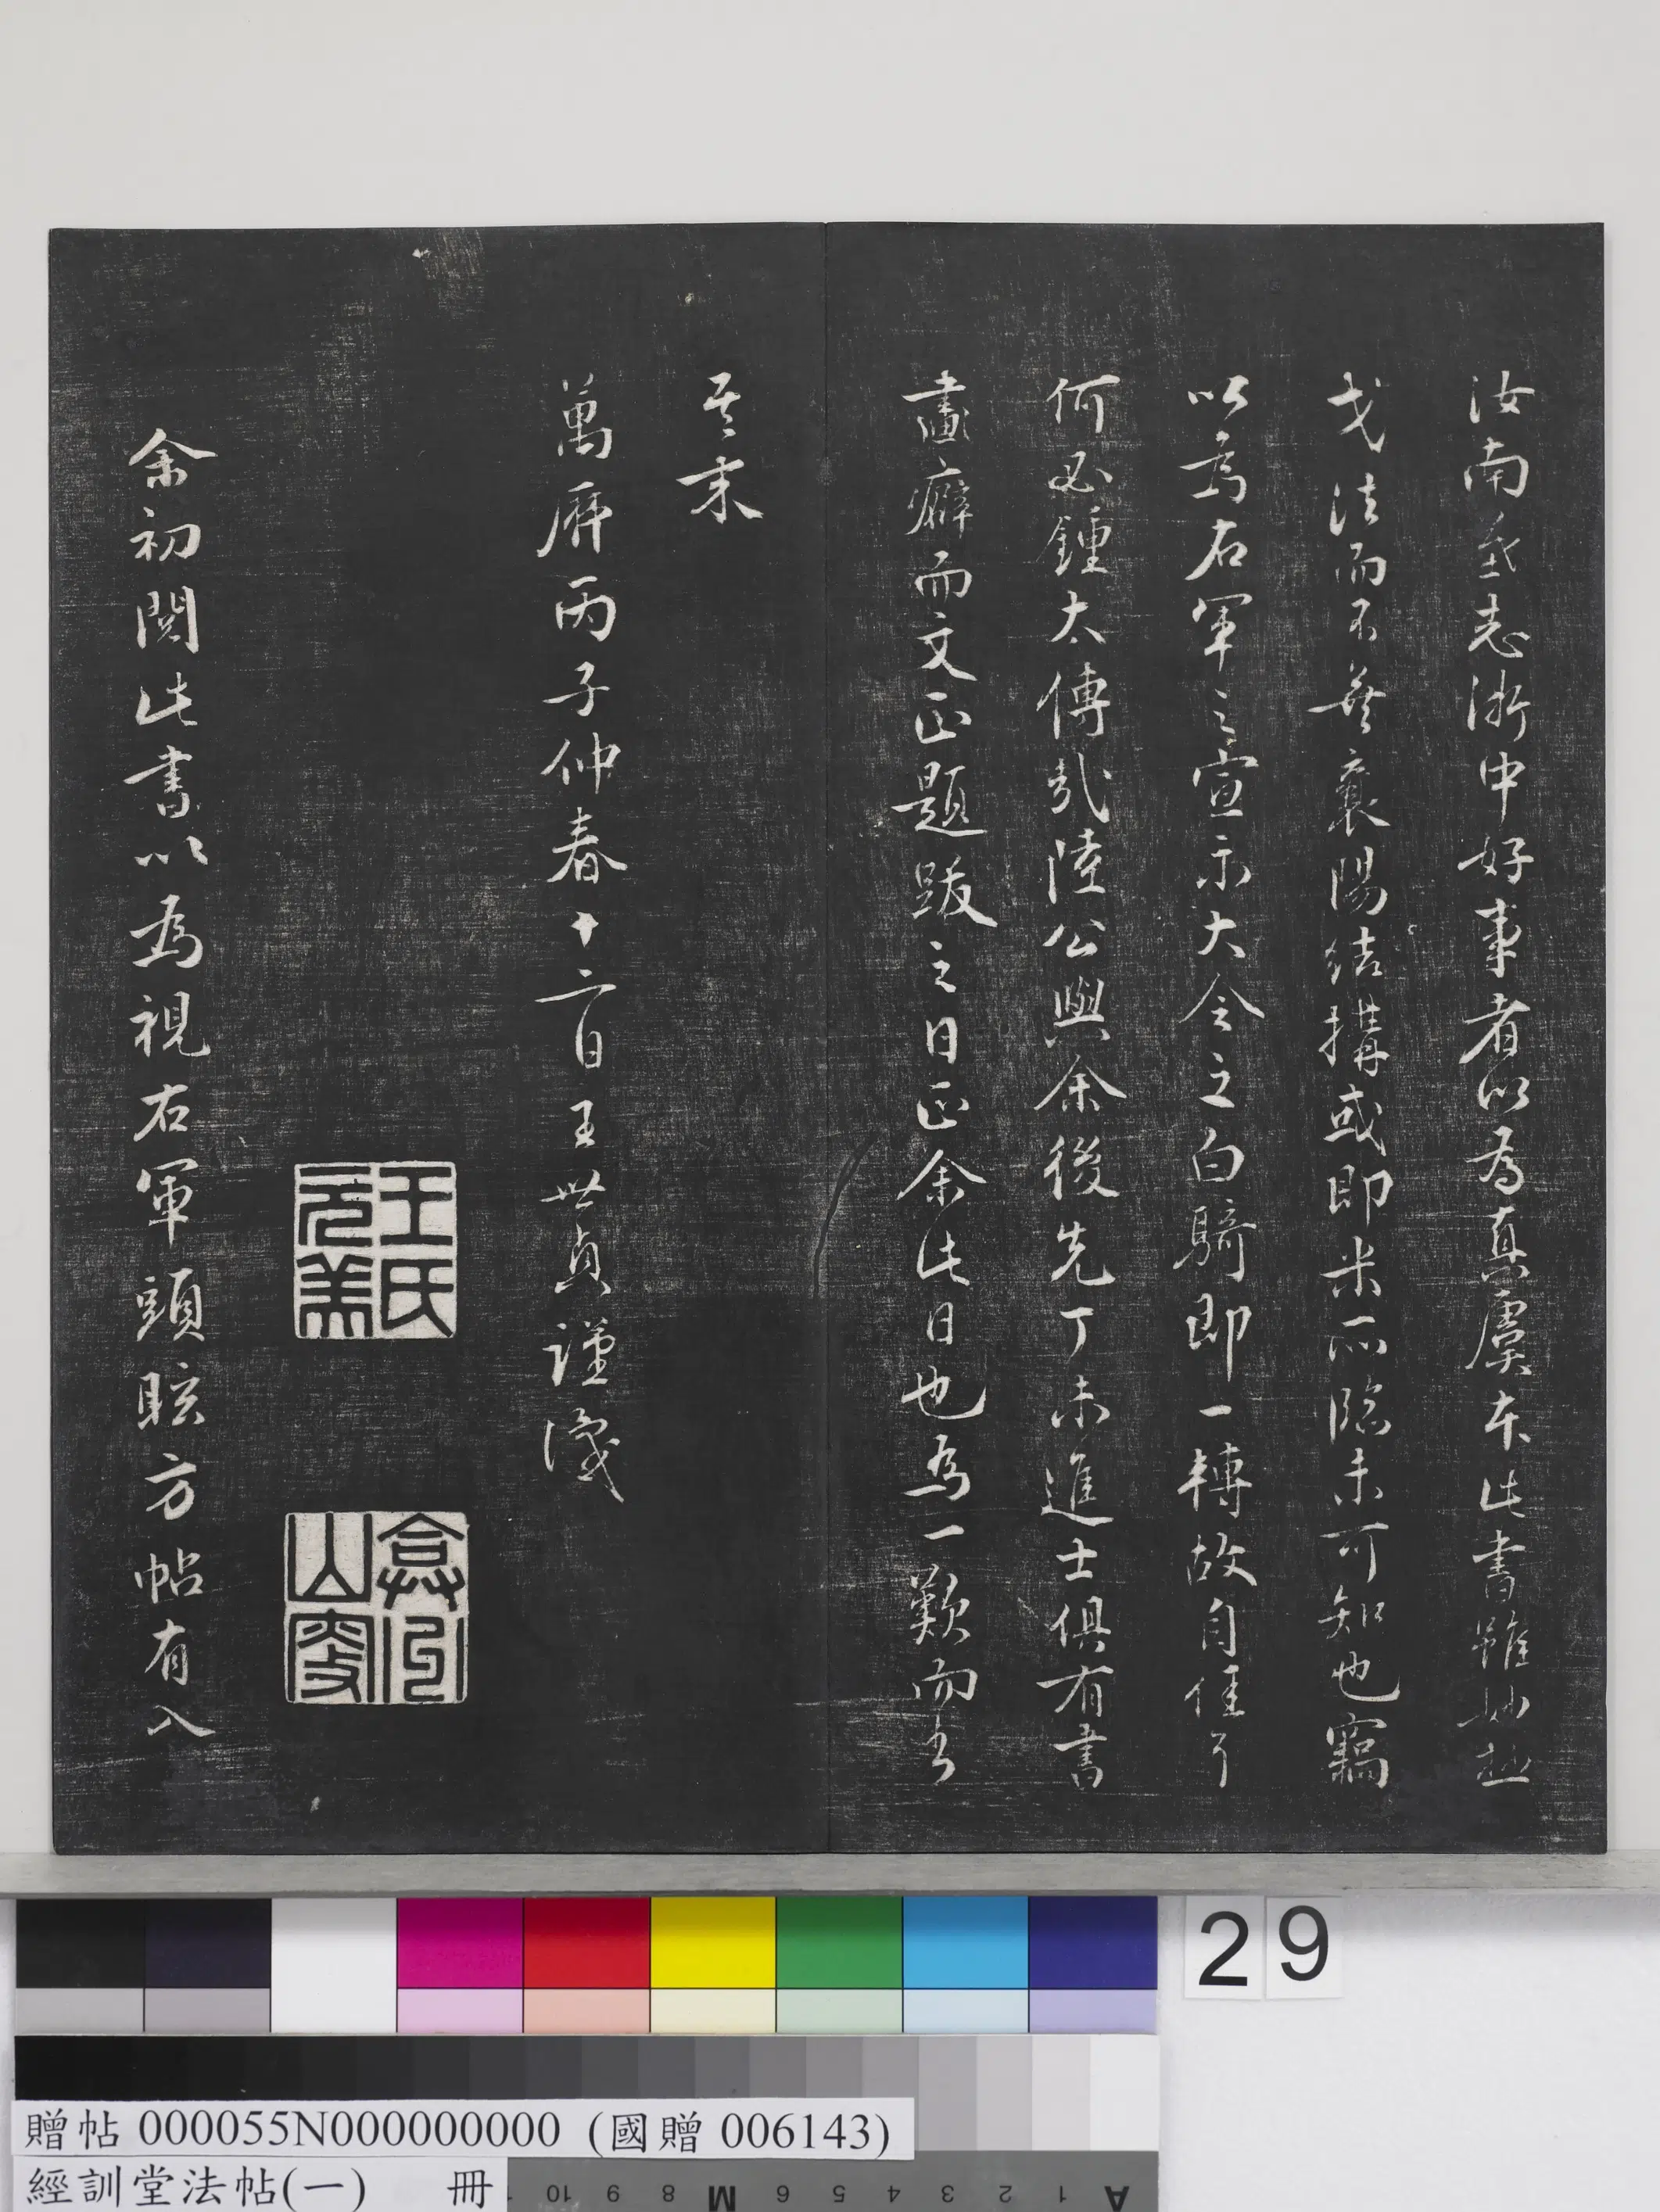 汝南公主志浙中好事者以為真虞本此書雖妙極
戈法而不無襄陽結構或即米所臨未可知也竊
以為右軍之宣示大令之白騎即一轉故自佳耳
何必鍾太傅哉陸公與余後先丁未進士俱有書
畫癖而文正題跋之日正余此日也為一歎而書
其末
萬曆丙子仲春十二日王世貞謹識
王氏元美
余初閱此書以為視右軍頭眩方帖有入
29
贈帖 000055N000000000 (國贈 006143)
經訓堂法帖(一) 冊
10 9 8 M 6 5 4 3 2 1 A